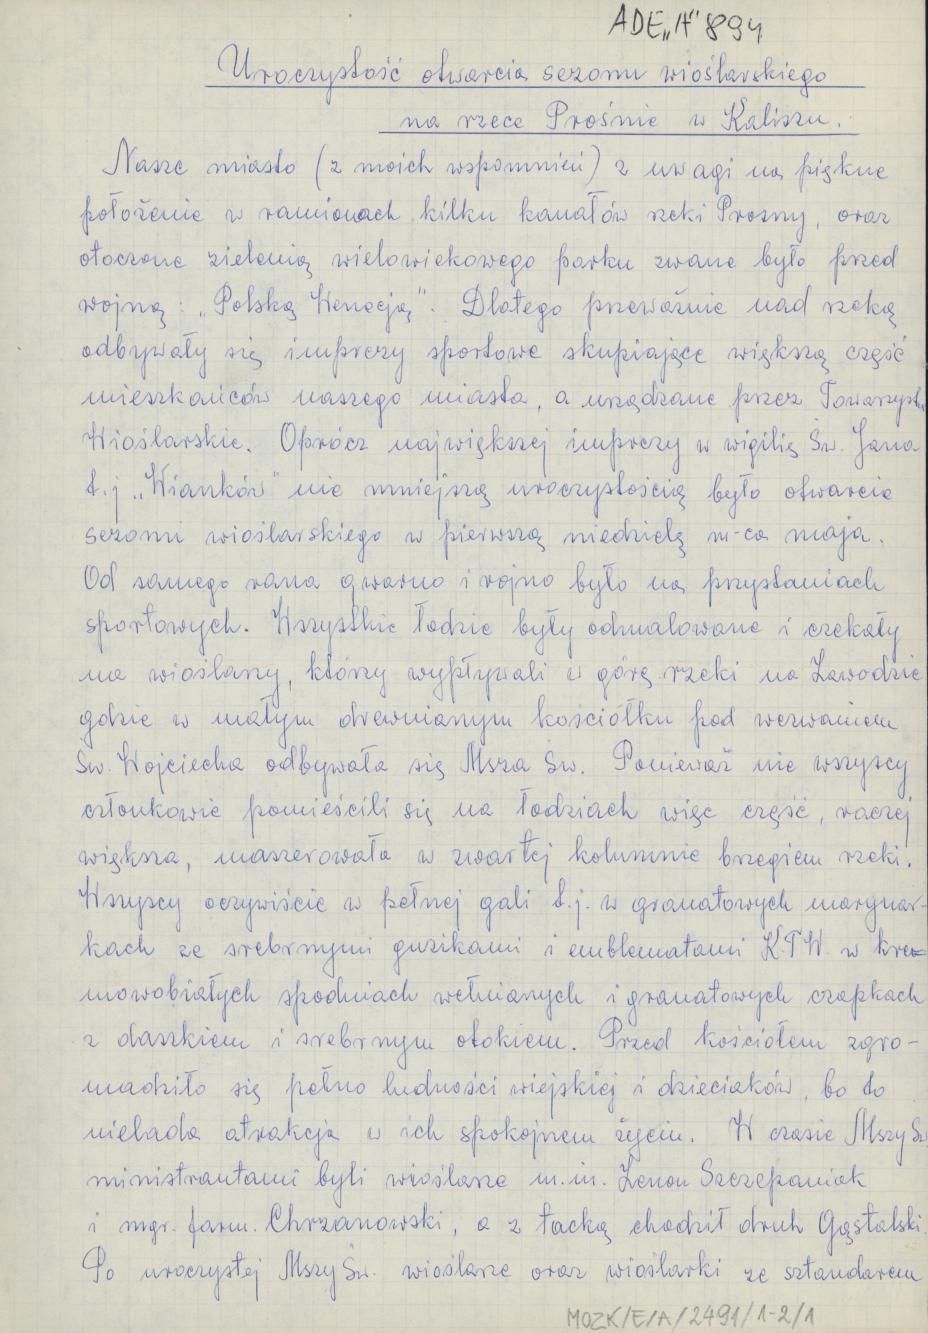 ADE„H" 894
Uroczystość otwarcia sezonu wioślarskiego
na rzece Prośnie w Kaliszu.
Nasze miasto (z moich wspomnień) z uwagi na piękne
położenie w ramionach kilku kanałów rzeki Prosny, oraz
otoczone zielenią wielowiekowego parku zwane było przed
wojną : „Polską Wenecją". Dlatego przeważnie nad rzeką
odbywały się imprezy sportowe skupiające większą część
mieszkańców naszego miasta, a urządzane przez Towarzyst.
Wioślarskie. Oprócz największej imprezy w wigilię Św. Jana
t.j „Wianków" nie mniejszą uroczystością było otwarcie
sezonu wioślarskiego w pierwszą niedzielę m-ca maja.
Od samego rana gwarno i rojno było na przystaniach
sportowych. Wszystkie łodzie były odmalowane i czekały
na wioślarzy, którzy wypływali w górę rzeki na Zawodzie
gdzie w małym drewnianym kościółku pod wezwaniem
Św. Wojciecha odbywała się Msza Św. Ponieważ nie wszyscy
członkowie pomieścili się na łodziach więc część, raczej
większa, maszerowała w zwartej kolumnie brzegiem rzeki.
Wszyscy oczywiście w pełnej gali t.j. w granatowych marynar-
kach ze srebrnymi guzikami i emblematami K.T.W. w kre-
mowobiałych spodniach wełnianych i granatowych czapkach
z daszkiem i srebrnym otokiem. Przed kościołem zgro-
madziło się pełno ludności wiejskiej i dzieciaków, bo to
nielada atrakcja w ich spokojnem życiu. W czasie Mszy Św
ministrantami byli wioślarze m.in. Zenon Szczepaniak
i mgr. farm. Chrzanowski, a z tacką chodził druh Gąstalski.
Po uroczystej Mszy Św. wioślarze oraz wioślarki ze sztandarem
MOZK/E/A/2491/1-2/1